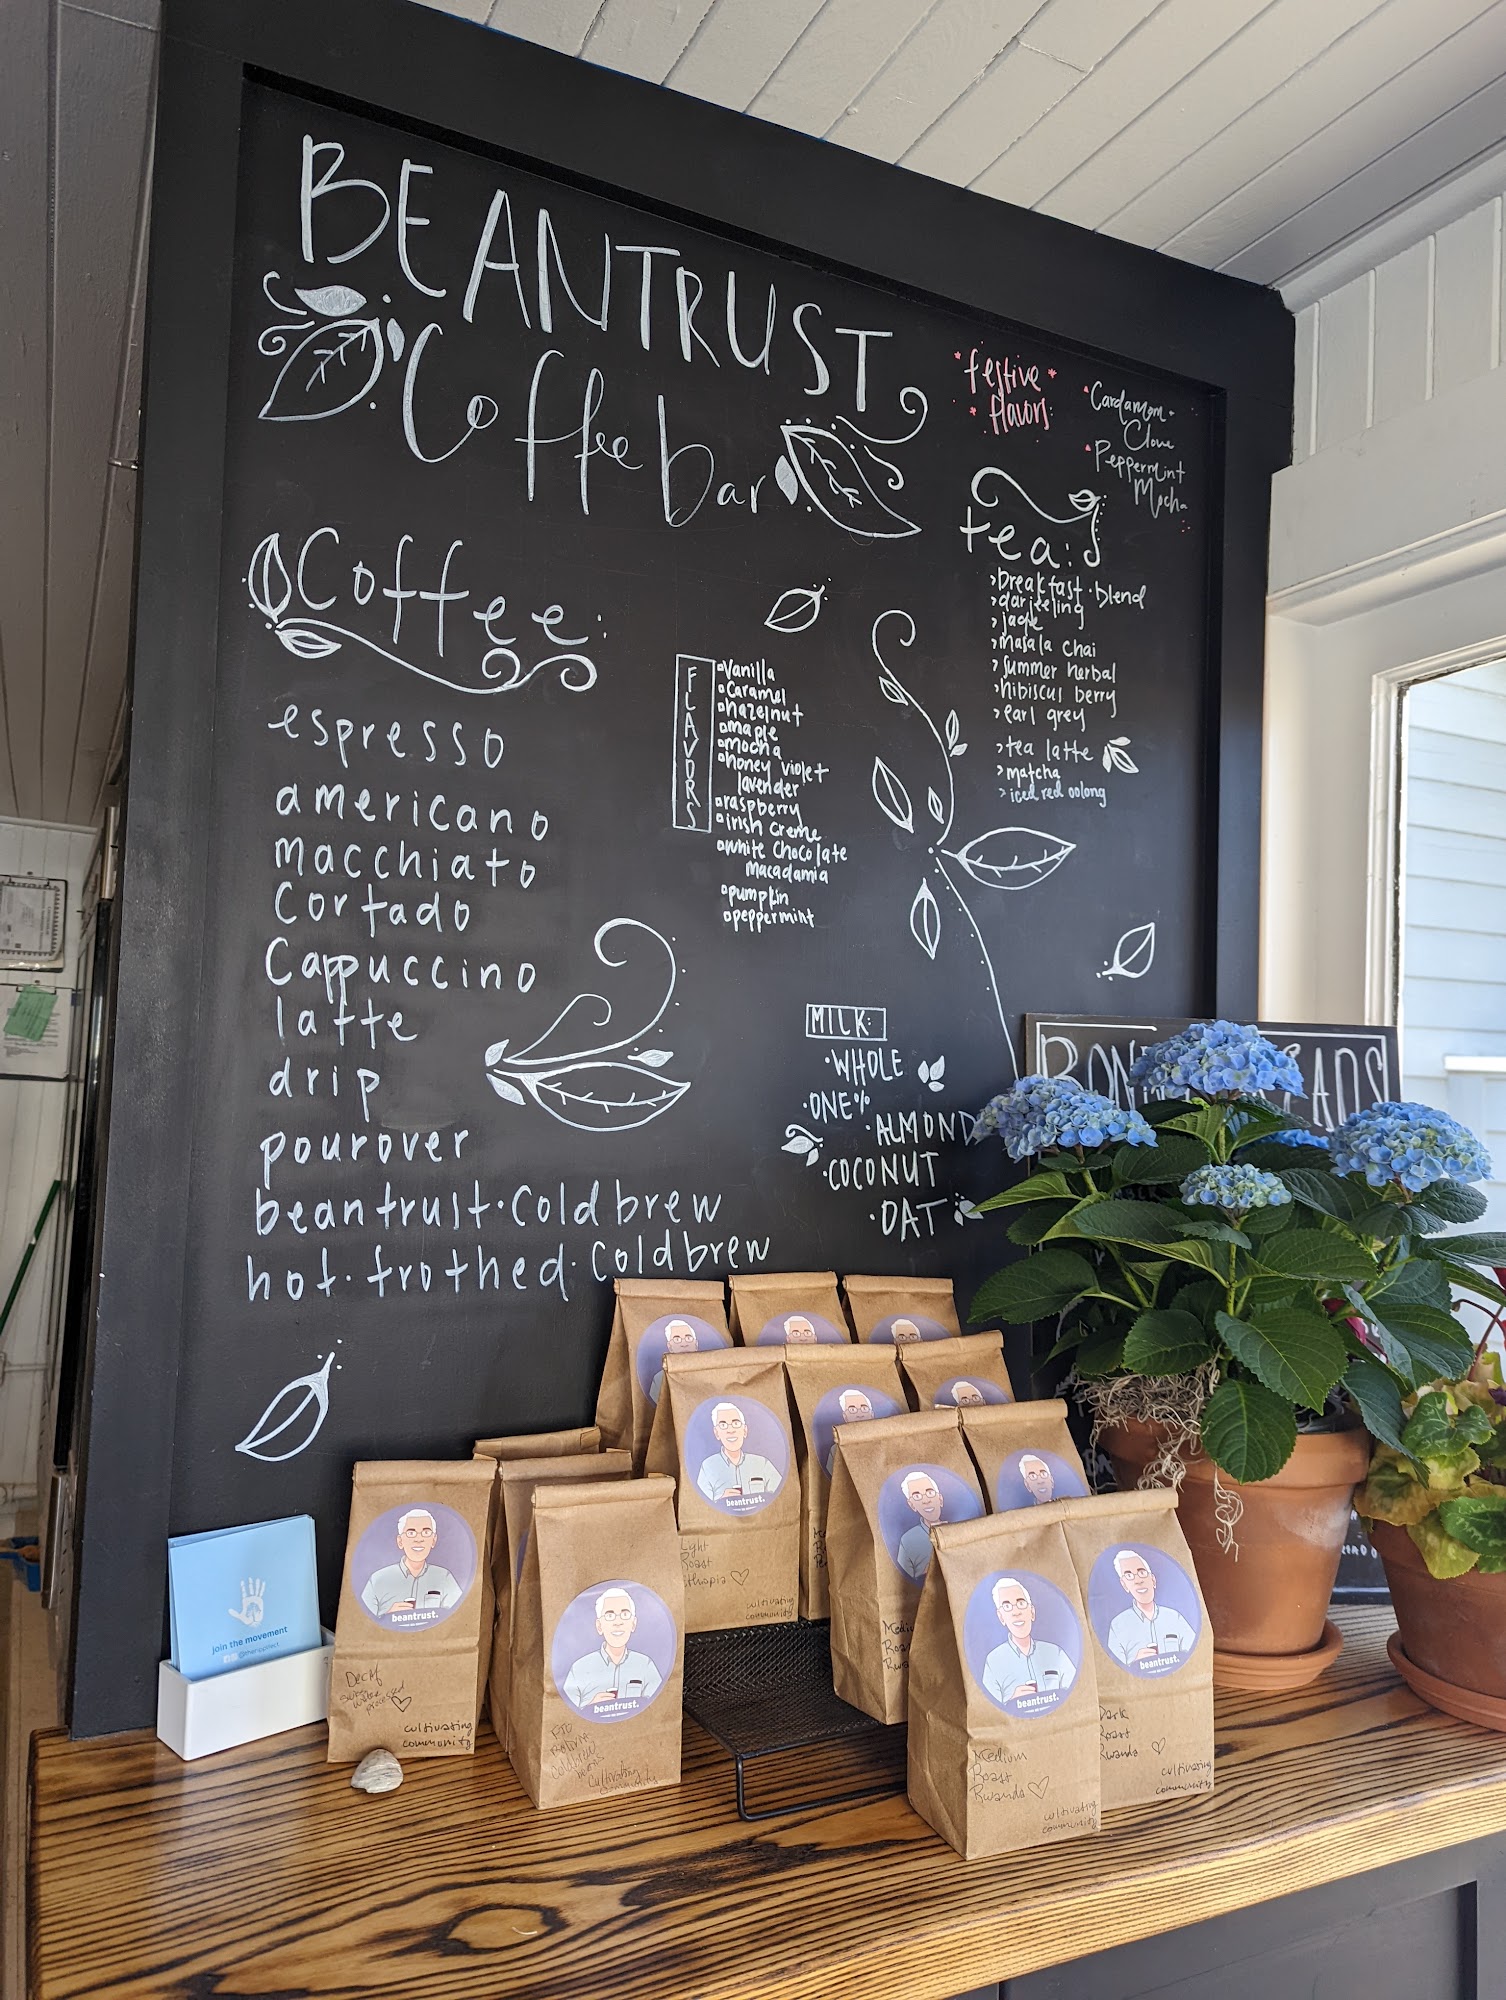 BEANTRUST
Coffee bar
festive
flavors:
Cardamom
Clove
Peppermint
Mocha
Coffee:
espresso
americano
macchiato
Cortado
Cappuccino
latte
drip
pourover
beantrust·Cold brew
hot·frothed·Cold brew
FLAVORS
Vanilla
Caramel
hazelnut
maple
mocha
honey violet
lavender
raspberry
irish creme
white chocolate
macadamia
pumpkin
peppermint
tea:
breakfast·blend
darjeeling
jade
masala chai
summer herbal
hibiscus berry
earl grey
tea latte
matcha
iced red oolong
MILK:
·WHOLE
·ONE%
·ALMOND
·COCONUT
·OAT
join the movement
beantrust.
Decaf
Swiss
water
processed
cultivating
community
beantrust.
FTO
cultivating
community
beantrust.
Light
Roast
Ethiopia
cultivating
community
beantrust.
Medium
Roast
Rwanda
cultivating
community
beantrust.
Dark
Roast
Rwanda
cultivating
community